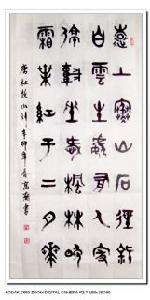 遠上寒山石徑斜
白雲生處有人家
停車坐愛楓林晚
霜葉紅於二月花
唐杜牧山行詩辛卯年